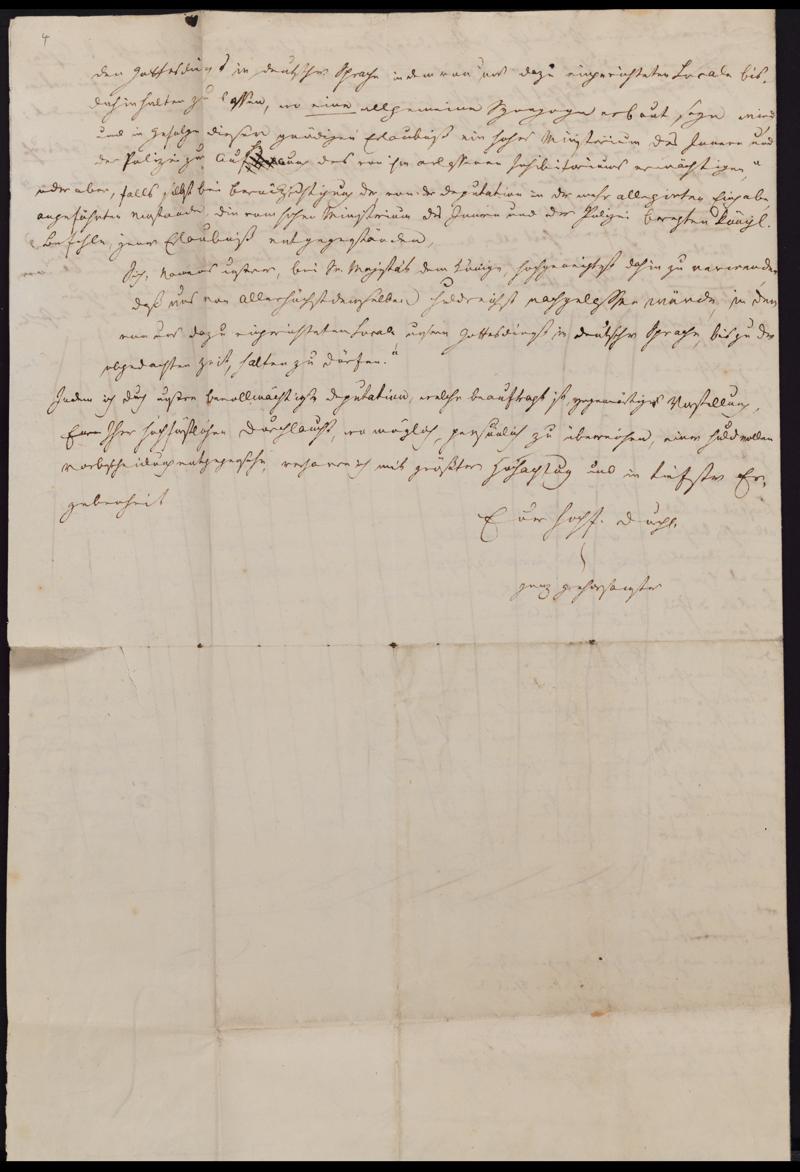 4
den Gottesdienst in deutscher Sprache in dem von uns dazu eingerichteten Locale bis
dahin halten zu lassen, wo eine allgemeine Synagoge erbaut seyn wird
und in Gefolge dieser gnädigen Erlaubniß ein hohes Ministerium des Innern und
der Polizei zur des von ihm erlassenen Inhibitoriums ermächtigen"
oder aber, falls, selbst bei Berücksichtigung der von der Deputation in der mehr allegirten Eingabe
angeführten Umstände, die vom hohen Ministerium des Innern und der Polizei Königl.
Befehle, jener Erlaubniß entgegenständen,
Sich, Namens unsrer, bei Sr. Majestät dem Könige, hochgeneigtest dahin zu verwenden
daß uns von Allerhöchstdemselben huldreichst nachgelassen würde, in dem
von uns dazu eingerichteten Locale, unsern Gottesdienst in deutscher Sprache, bis zu der
obgedachten Zeit, halten zu dürfen."
Indem ich durch unsre bevollmächtigte Deputation, welche beauftragt ist, gegenwärtige Vorstellung,
Ihro Hochfürstlichen Durchlaucht, wo möglich, persönlich zu überreichen, einer huldvollen
entgegensehe, verharre ich mit größter Hochachtung und in tiefster Er-
gebenheit
Euer Hochf. Durchl.
ganz gehorsamster